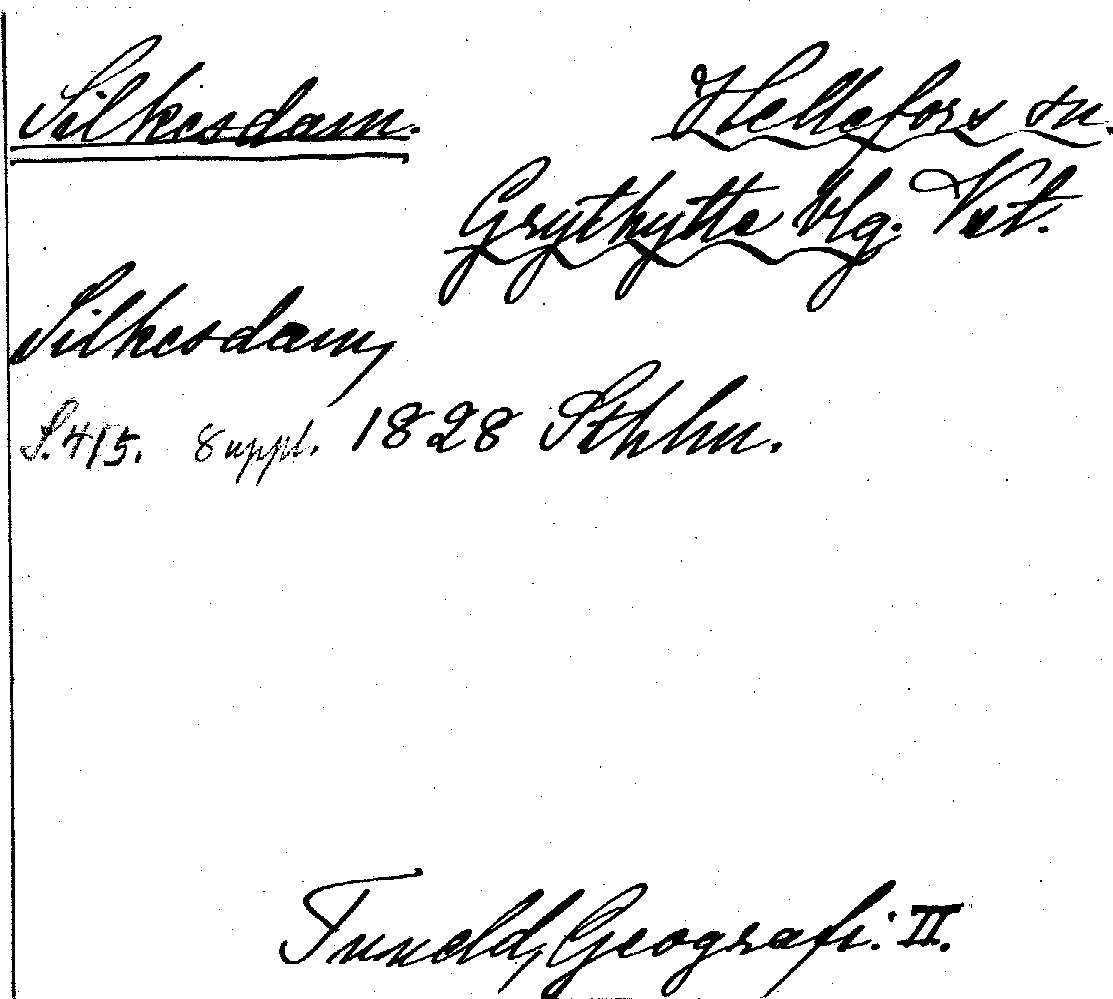 Silkesdam.
Hellefors sn.
Grythytte blg. Vst.
Silkesdam,
S. 415. Suppl. 1828 Sthlm.
Tuneld, Geografi: II.